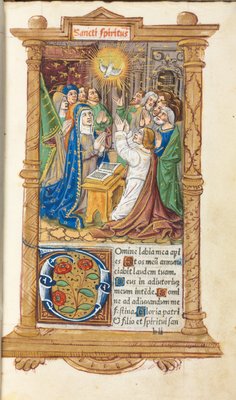 Sancti spiritus
Domine labia mea apⁱ
es Et os meū annun
ciabit laudem tuam.
Deus in adiutoriū
meum intēde. Domi
ne ad adiuvandum me
festina. Gloria patri
& filio et spiritui san